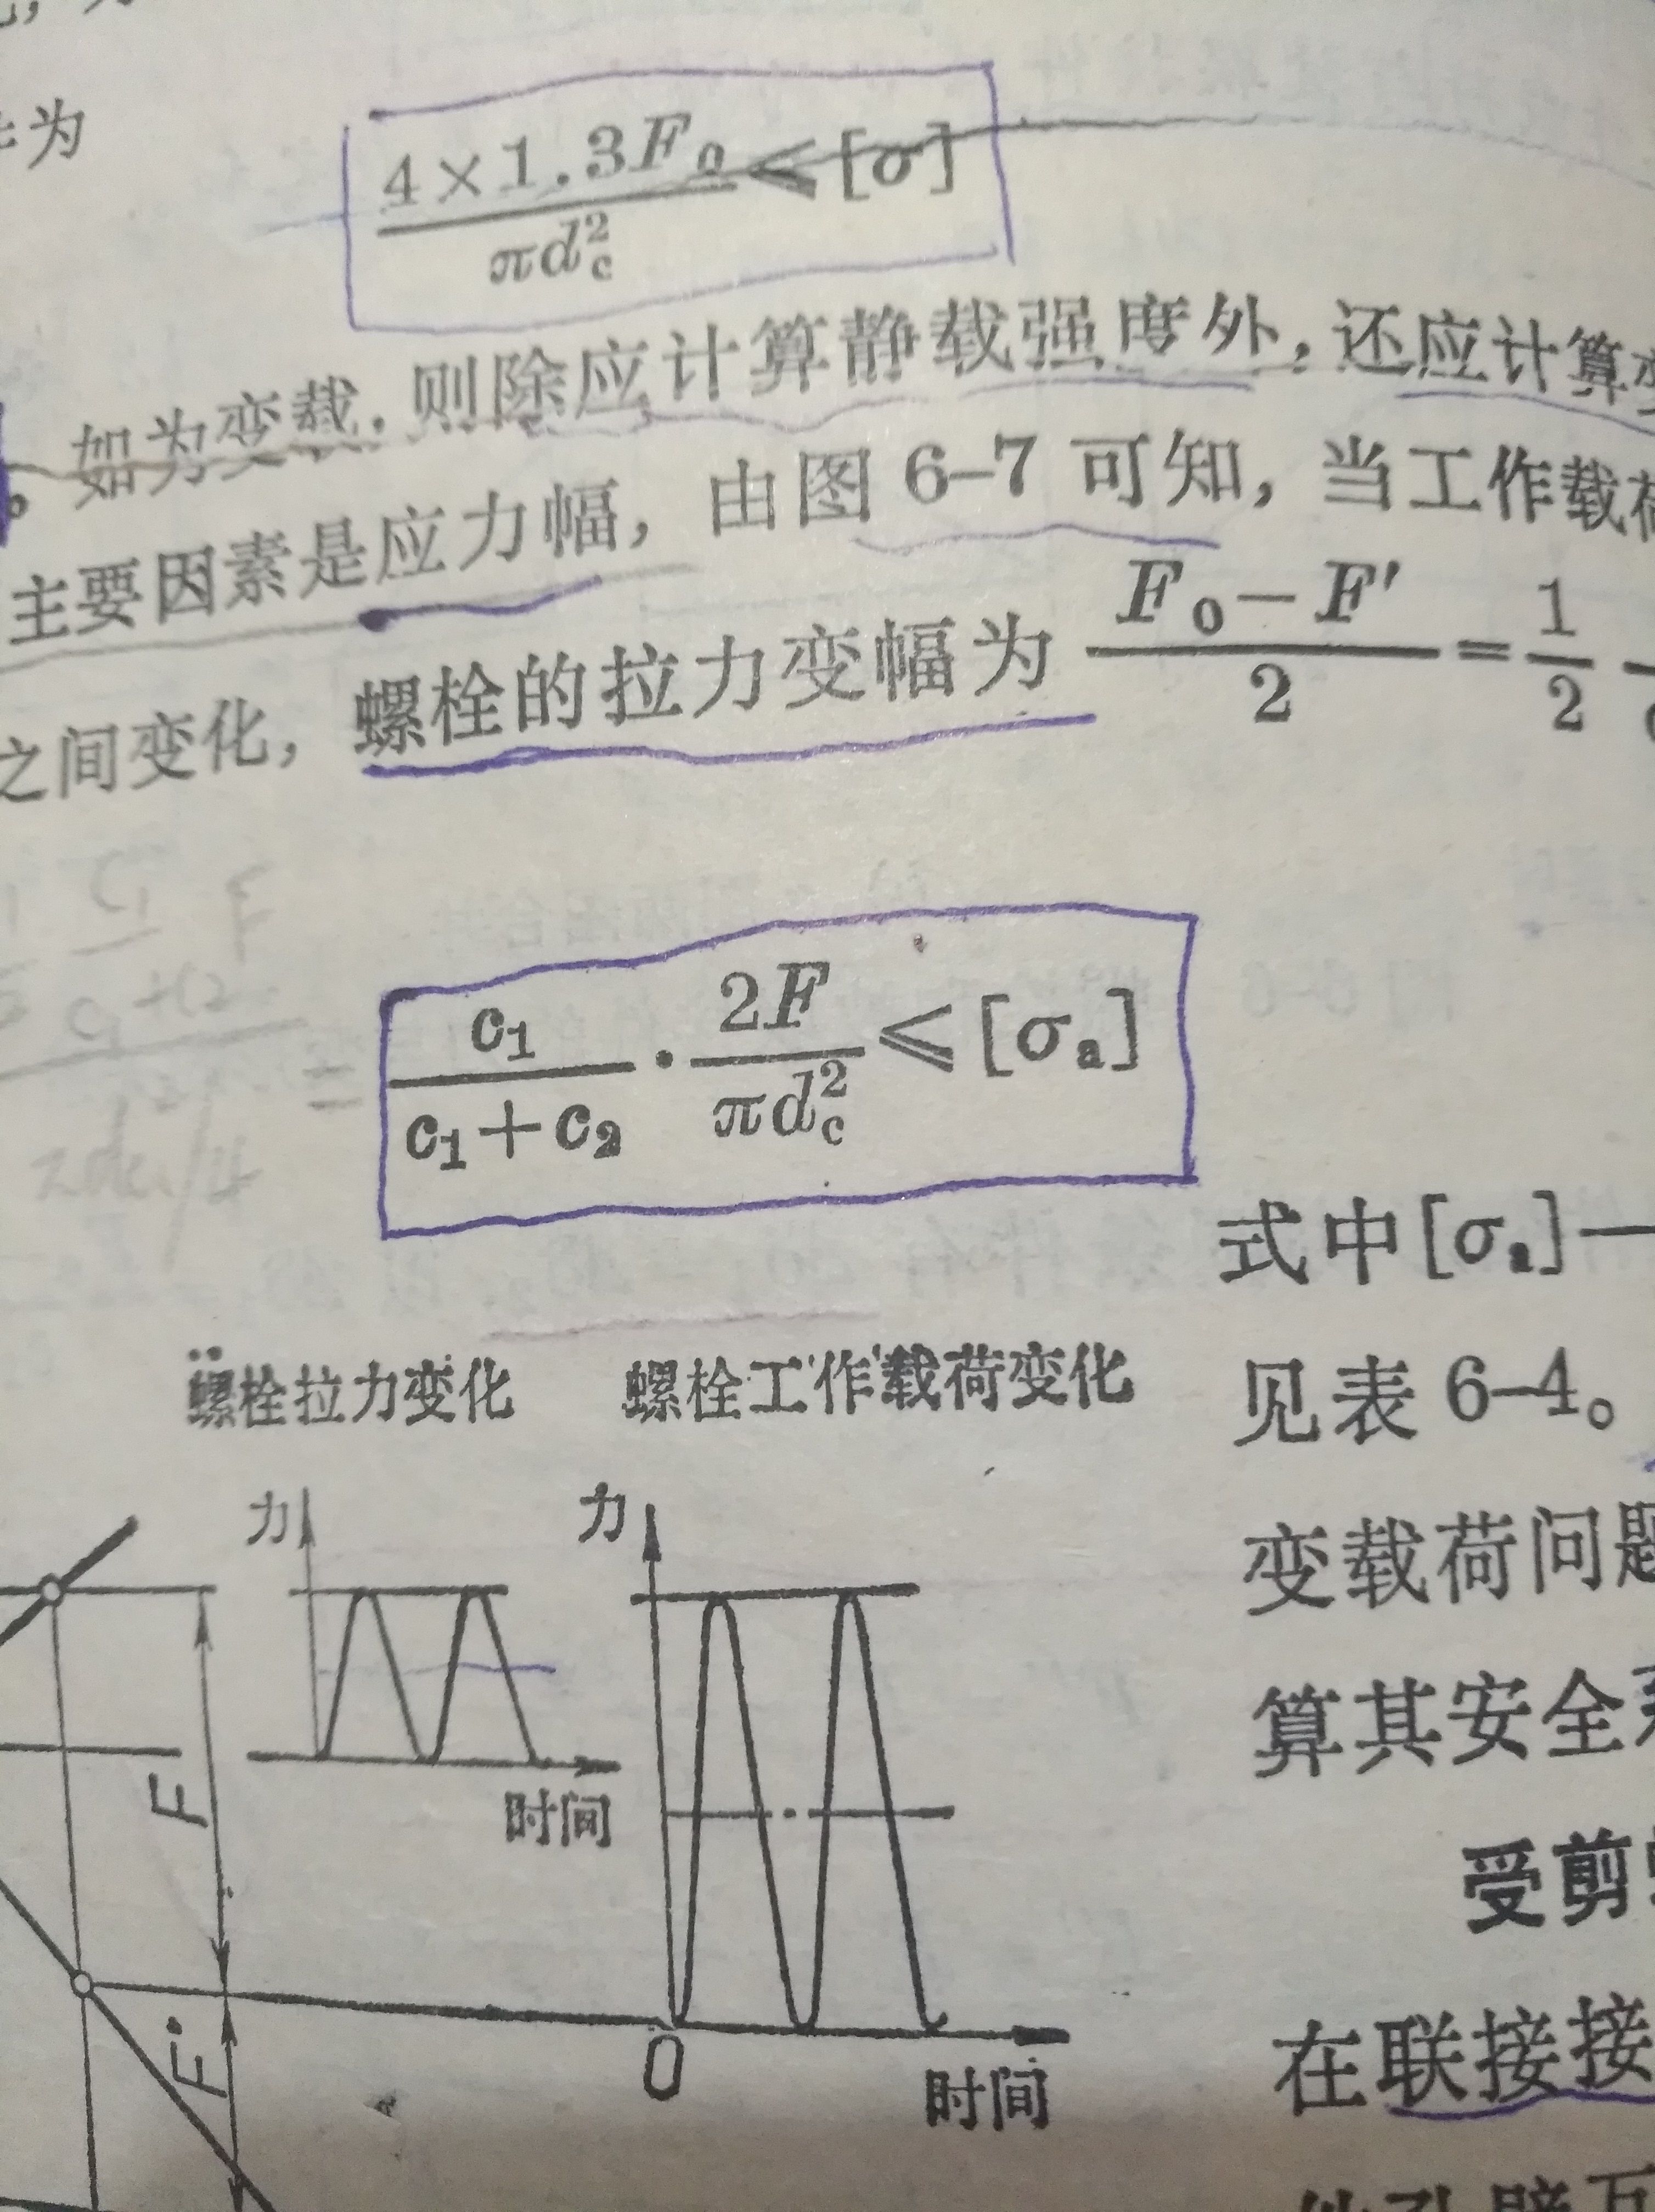 为
4×1.3F₀/πd_c² ≤ [σ]
。如为变载,则除应计算静载强度外,还应计算变
主要因素是应力幅,由图 6-7 可知,当工作载荷
之间变化,螺栓的拉力变幅为 (F₀-F′)/2 = 1/2
c₁/(c₁+c₂) · 2F/πd_c² ≤ [σₐ]
式中[σₐ]—
螺栓拉力变化 螺栓工作载荷变化
见表 6-4。
力 力
变载荷问题
算其安全系
F
时间
受剪
F′
0
时间
在联接接